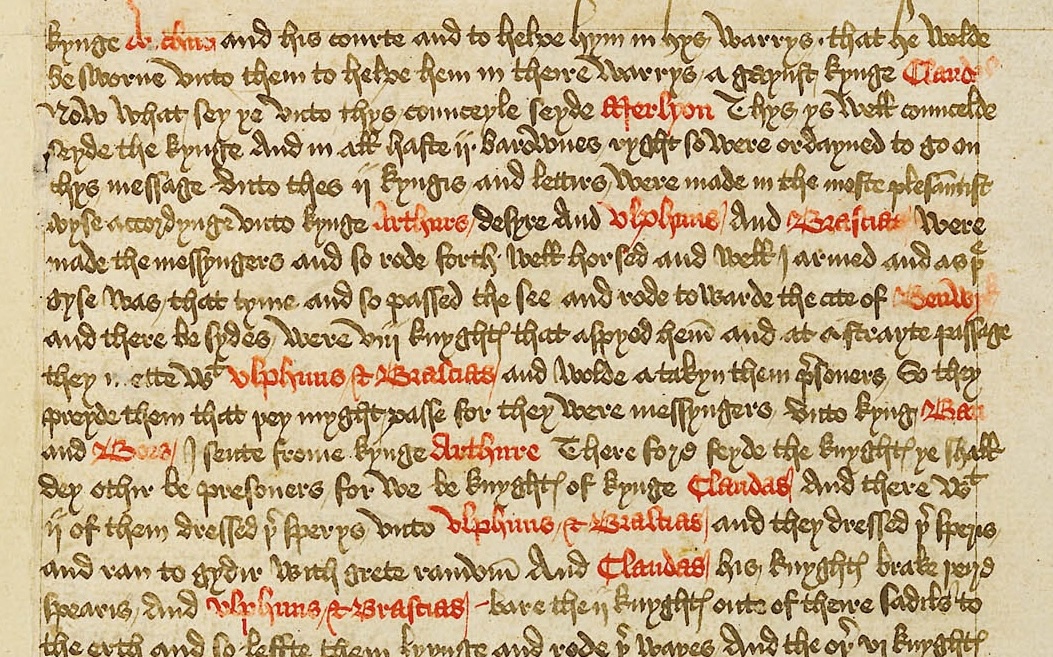 kynge Arthur and his courte and to helpe hym in hys warrys · that he wolde
be sworne unto them to helpe hem in theire warrys a gaynst kynge Claud
Now what sey ye unto thys counceyle seyde Merlyon Thys ys well councelde
seyde the kynge And in all haste ij · barownes ryght so were ordayned to go on
thys message unto thes ij kyngis and lettirs were made in the moste plesantist
wyse accordynge unto kynge Arthurs desyre And Ulphuns And Brascias were
made the messyngers and so rode forth well horsed and well I armed and as þe
gyse was that tyme and so passed the see and rode towarde the cite of Benwik
and there be sydes were viij knyghtes that aspyed hem and at a strayte passage
they mette wt Ulphuns & Brascias and wolde a takyn them presoners So they
preyde them that þey myght passe for they were messyngers unto kyng Ban
and Bors I sente frome kynge Arthure There fore seyde the knyghtes ye shall
dey othir be presoners for we be knyghtes of kynge Claudas And there wt
ij of them dressed þer sperys unto Ulphuns & Brascias and they dressed þer sperys
and ran to gydir with grete raundom And Claudas his knyghtes brake þere
spearis And Ulphuns & Brascias bare the ij knyghtes oute of theire sadils to
the erth and so leffte them lyynge and rode þer wayes And the oþer vj knyghtes